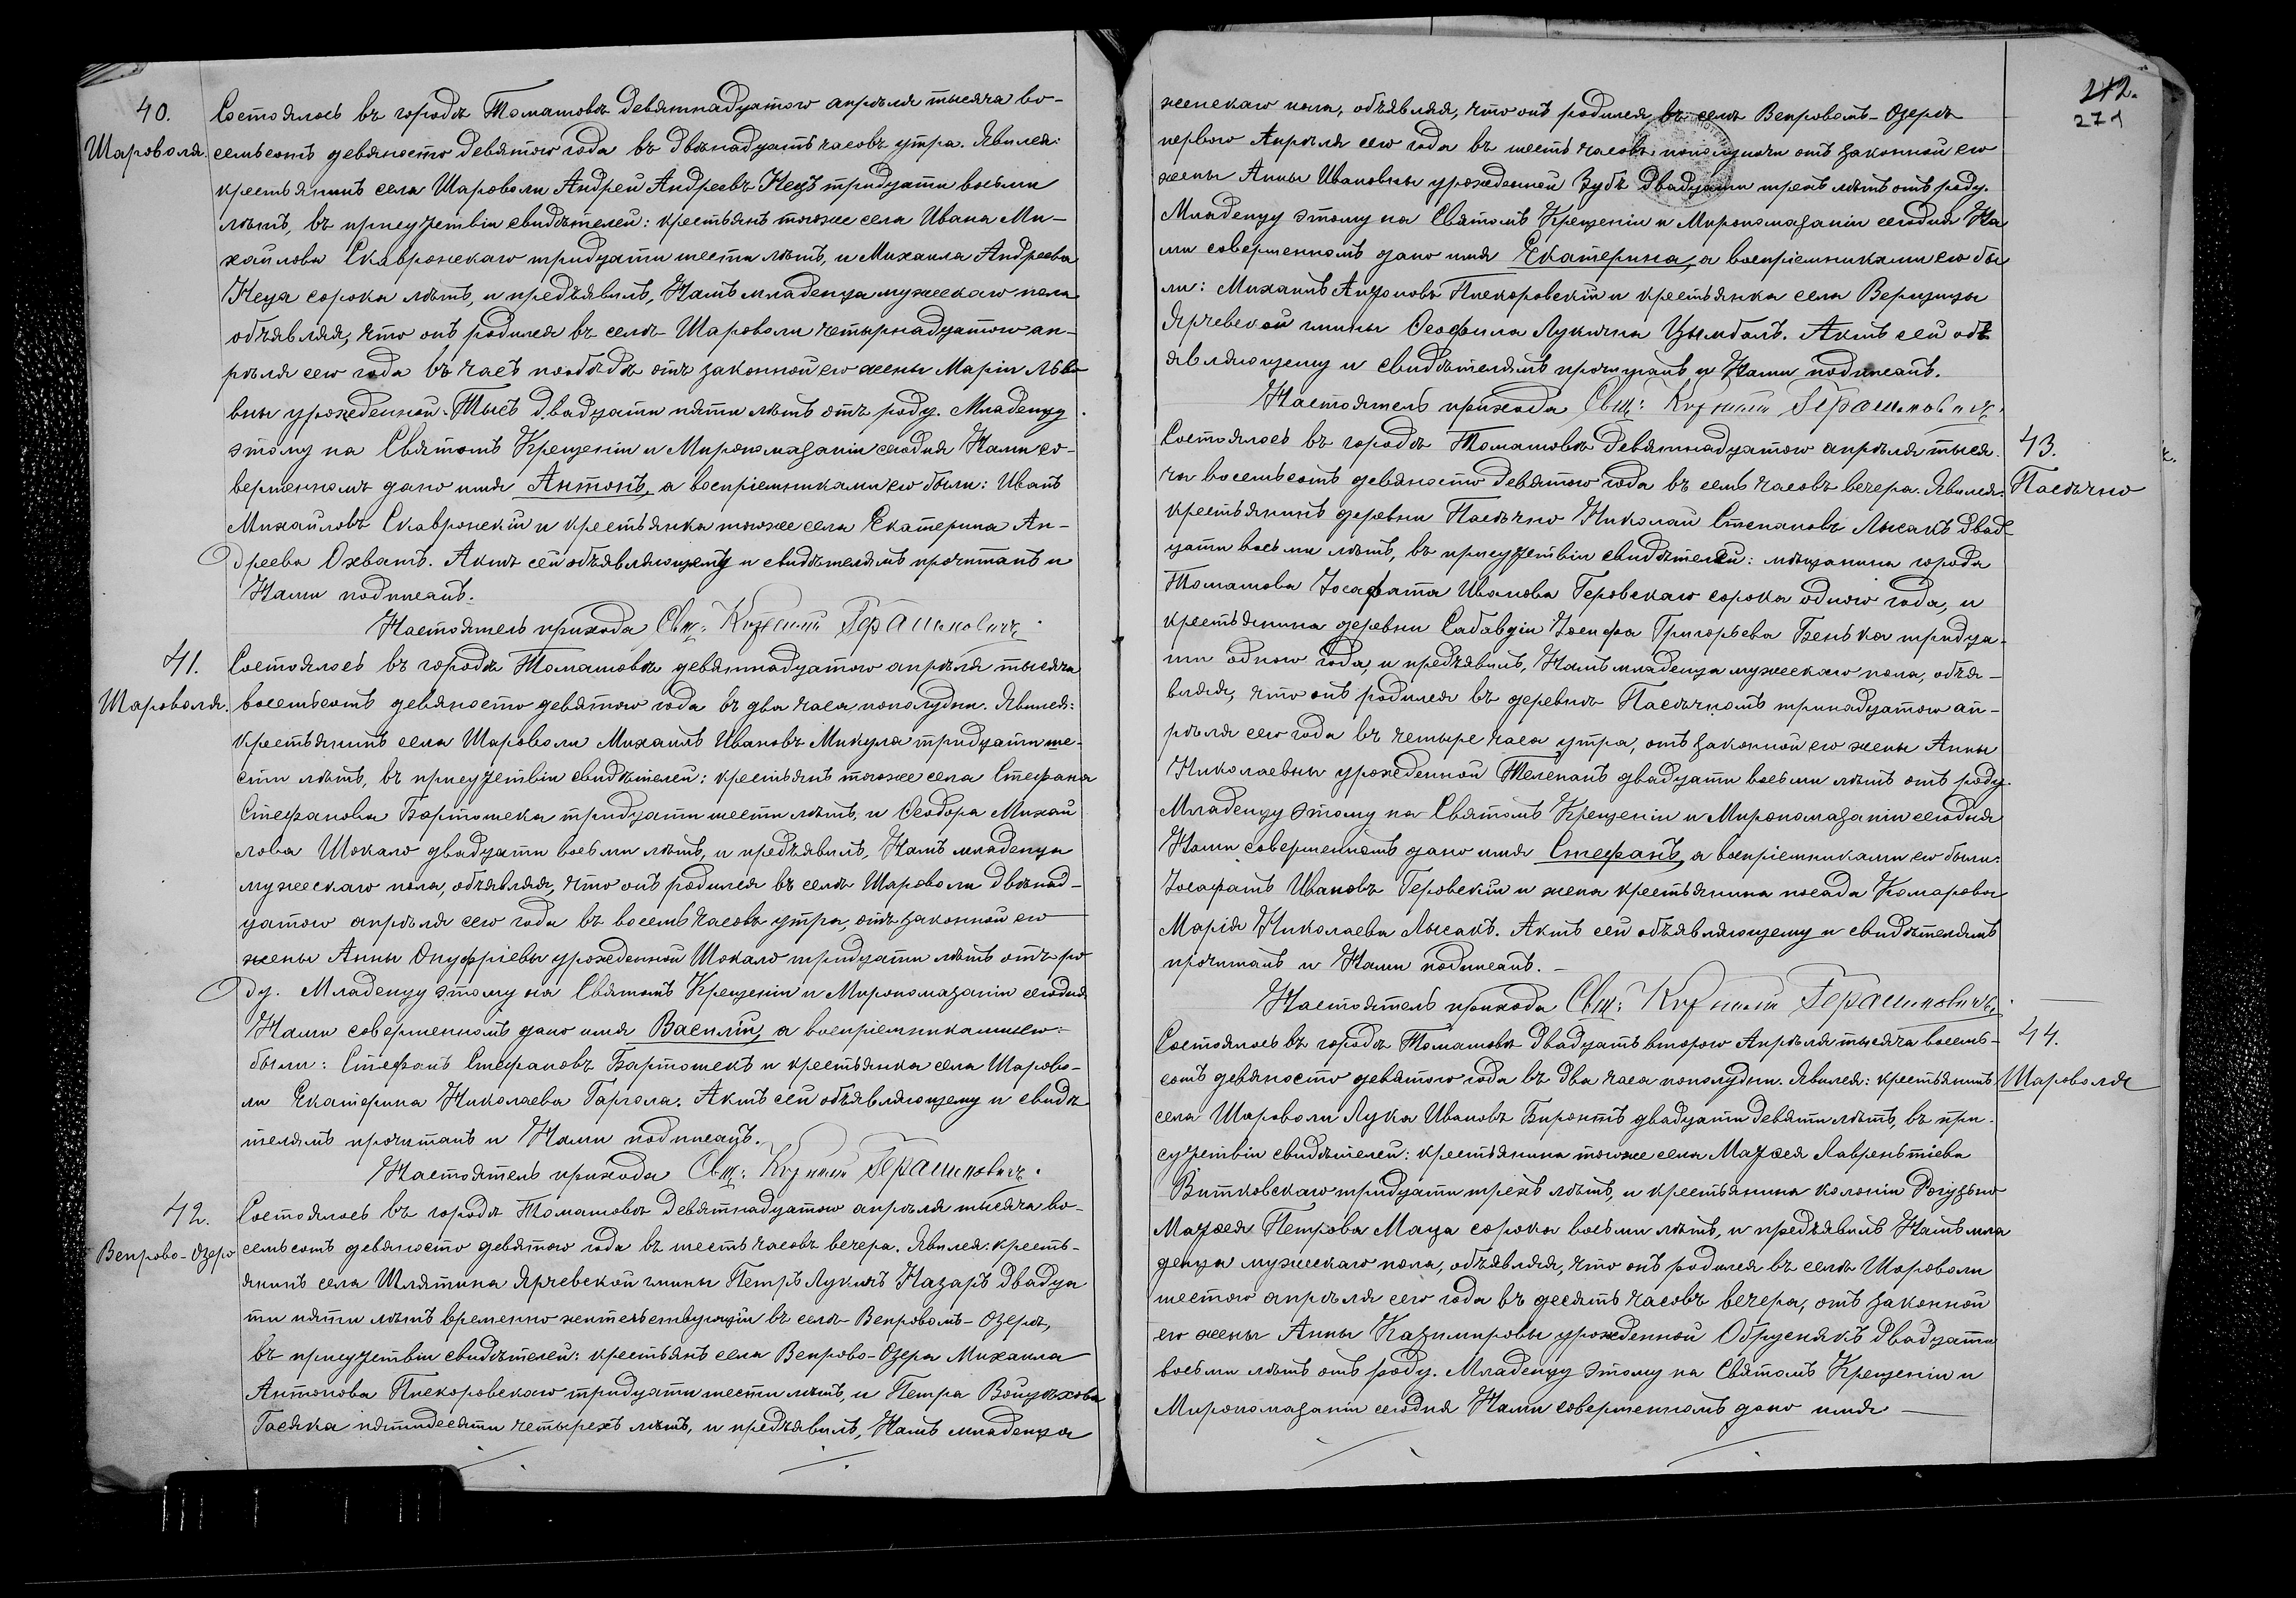 40.
Шароволя.
Состоялось въ городѣ Томашовѣ девятнадцатого апрѣля тысяча во-
семьсотъ девяносто девятого года въ двѣнадцать часовъ утра. Явился:
крестьянинъ села Шароволи Андрей Андреевъ Кецъ тридцати восьми
лѣтъ, въ присутствіи свидѣтелей: крестьянъ тогоже села Ивана Ми-
хайлова Скавронскаго тридцати шести лѣтъ, и Михаила Андреева
Кеця сорока лѣтъ, и предъявилъ, Намъ младенца мужескаго пола
объявляя, что онъ родился въ селѣ Шароволи четырнадцатого ап-
рѣля сего года въ часъ пообѣдѣ отъ законной его жены Маріи Льво
вны урожденной Тысъ двадцати пяти лѣтъ отъ роду. Младенцу
этому на Святомъ Крещеніи и Миропомазаніи сегодня Нами со-
вершенномъ дано имя Антонъ, а воспріемниками его были: Иванъ
Михайловъ Скавронскій и крестьянка тогоже села Екатерина Ан-
дреева Охватъ. Актъ сей объявляющему и свидѣтелямъ прочитанъ и
Нами подписанъ.
Настоятель прихода Свщ: Герасимовичъ.
41.
Шароволя.
Состоялось въ городѣ Томашовѣ девятнадцатого апрѣля тысяча
восемьсотъ девяносто девятого года въ два часа пополудни. Явился:
Крестьянинъ села Шароволи Михаилъ Ивановъ Микула тридцати ше-
сти лѣтъ, въ присутствіи свидѣтелей: крестьянъ тогоже села Стефана
Стефанова Бартошека тридцати шести лѣтъ, и Ѳеодора Михай
лова Шокало двадцати восьми лѣтъ, и предъявилъ, Намъ младенца
мужескаго пола, объявляя, что онъ родился въ селѣ Шароволи двѣнад-
цатого апрѣля сего года въ восемь часовъ утра, отъ законной его
жены Анны Онуфріевы урожденной Шокало тридцати лѣтъ отъ ро
ду. Младенцу этому на Святомъ Крещеніи и Миропомазаніи сегодня
Нами совершенномъ дано имя Василій, а воспріемниками его:
были: Стефанъ Стефановъ Бартошекъ и крестьянка села Шарово-
ли Екатерина Николаева Гаргола. Актъ сей объявляющему и свидѣ
телямъ прочитанъ и Нами подписанъ.
Настоятель прихода Свщ: Герасимовичъ.
42.
Вепрово-Озеро
Состоялось въ городѣ Томашовѣ девятнадцатого апрѣля тысяча во-
семьсотъ девяносто девятого года въ шесть часовъ вечера. Явился: кресть-
янинъ села Шлятина Ярчевской гмины Петръ Лукичъ Назаръ двадца
ти пяти лѣтъ временно жительствующій въ селѣ Вепровомъ-Озерѣ,
въ присутствіи свидѣтелей: крестьянъ села Вепрово-Озера Михаила
Антонова Пискоровскаго тридцати шести лѣтъ, и Петра Войцѣхова
Гасяка пятидесяти четырехъ лѣтъ, и предъявилъ, Намъ младенца
212.
271
женскаго пола, объявляя, что онъ родился въ селѣ Вепровомъ-Озерѣ
первого Апрѣля сего года въ шесть часовъ пополуночи отъ законной его
жены Анны Ивановны урожденной Зубъ двадцати трехъ лѣтъ отъ роду.
Младенцу этому на Святомъ Крещеніи и Миропомазаніи сегодня На
ми совершенномъ дано имя Екатерина, а воспріемниками его бы
ли: Михаилъ Антоновъ Пискоровскій и крестьянка села Вершицы
Ярчевской гмины Ѳеофила Лукична Цымбалъ. Актъ сей объ
являющему и свидѣтелямъ прочитанъ и Нами подписанъ.
Настоятель прихода Свщ: Герасимовичъ.
43.
Пасѣчно
Состоялось въ городѣ Томашовѣ девятнадцатого апрѣля тыся.
ча восемьсотъ девяносто девятого года въ семь часовъ вечера. Явился:
крестьянинъ деревни Пасѣчно Николай Степановъ Лысакъ двад-
цати восьми лѣтъ, въ присутствіи свидѣтелей: мѣщанина города
Томашова Іосафата Иванова Геровскаго сорока одного года, и
крестьянина деревни Сабавдіи Іосифа Григорьева Бенька тридца-
ти одного года, и предъявилъ, Намъ младенца мужескаго пола, объя-
вляя, что онъ родился въ деревнѣ Пасѣчномъ тринадцатого ап-
рѣля сего года въ четыре часа утра, отъ законной его жены Анны
Николаевны урожденной Телепанъ двадцати восьми лѣтъ отъ роду.
Младенцу этому на Святомъ Крещеніи и Миропомазаніи сегодня
Нами совершенномъ дано имя Стефанъ, а воспріемниками его были:
Іосафатъ Ивановъ Геровскій и жена крестьянина посада Комарова
Марія Николаева Лысакъ. Актъ сей объявляющему и свидѣтелямъ
прочитанъ и Нами подписанъ.
Настоятель прихода Свщ: Герасимовичъ.
44.
Шароволя
Состоялось въ городѣ Томашовѣ двадцать второго Апрѣля тысяча восемь-
сотъ девяносто девятого года въ два часа пополудни. Явился: крестьянинъ
села Шароволи Лука Ивановъ Биронтъ двадцати девяти лѣтъ, въ при-
сутствіи свидѣтелей: крестьянина тогоже села Матѳея Лаврентіева
Витковскаго тридцати трехъ лѣтъ, и крестьянина колоніи Рогузьно
Матѳея Петрова Маца сорока восьми лѣтъ, и предъявилъ Намъ мла
денца мужескаго пола, объявляя, что онъ родился въ селѣ Шароволи
шестого апрѣля сего года въ десять часовъ вечера, отъ законной
его жены Анны Казимировы урожденной Обруснякъ двадцати
восьми лѣтъ отъ роду. Младенцу этому на Святомъ Крещеніи и
Миропомазаніи сегодня Нами совершенномъ дано имя